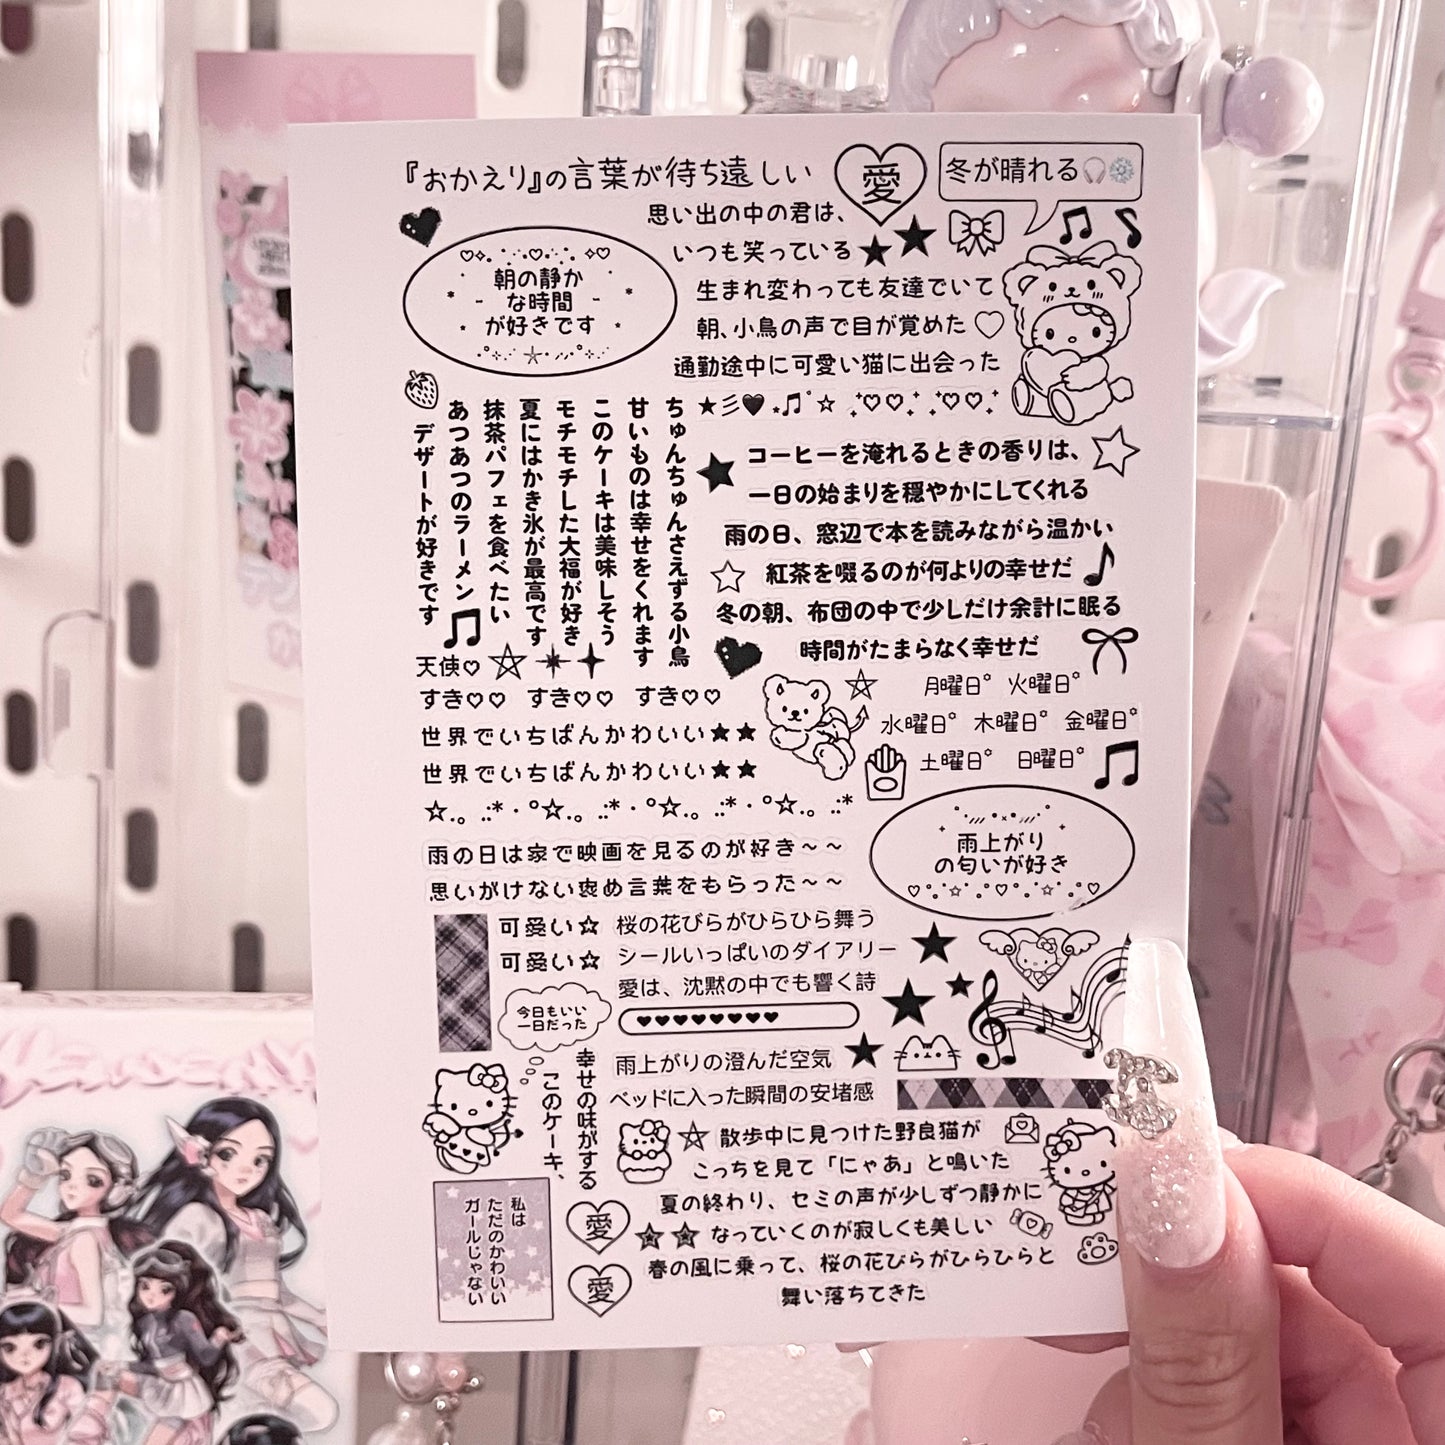 『おかえり』の言葉が待ち遠しい
愛
冬が晴れる
朝の静か
な時間
が好きです
思い出の中の君は、
いつも笑っている
生まれ変わっても友達でいて
朝、小鳥の声で目が覚めた
通勤途中に可愛い猫に出会った
ちゅんちゅんさえずる小鳥
甘いものは幸せをくれます
このケーキは美味しそう
モチモチした大福が好き
夏にはかき氷が最高です
抹茶パフェを食べたい
あつあつのラーメン
デザートが好きです
コーヒーを淹れるときの香りは、
一日の始まりを穏やかにしてくれる
雨の日、窓辺で本を読みながら温かい
紅茶を啜るのが何よりの幸せだ
冬の朝、布団の中で少しだけ余計に眠る
時間がたまらなく幸せだ
天使♡
すき♡♡ すき♡♡ すき♡♡
月曜日 火曜日
水曜日 木曜日 金曜日
土曜日 日曜日
世界でいちばんかわいい★★
世界でいちばんかわいい★★
雨上がり
の匂いが好き
雨の日は家で映画を見るのが好き～～
思いがけない褒め言葉をもらった～～
可愛い
可愛い
桜の花びらがひらひら舞う
シールいっぱいのダイアリー
愛は、沈黙の中でも響く詩
今日もいい
一日だった
幸せの味がする
このケーキ、
雨上がりの澄んだ空気
ベッドに入った瞬間の安堵感
散歩中に見つけた野良猫が
こっちを見て「にゃあ」と鳴いた
夏の終わり、セミの声が少しずつ静かに
なっていくのが寂しくも美しい
春の風に乗って、桜の花びらがひらひらと
舞い落ちてきた
私は
ただのかわいい
ガールじゃない
愛
愛